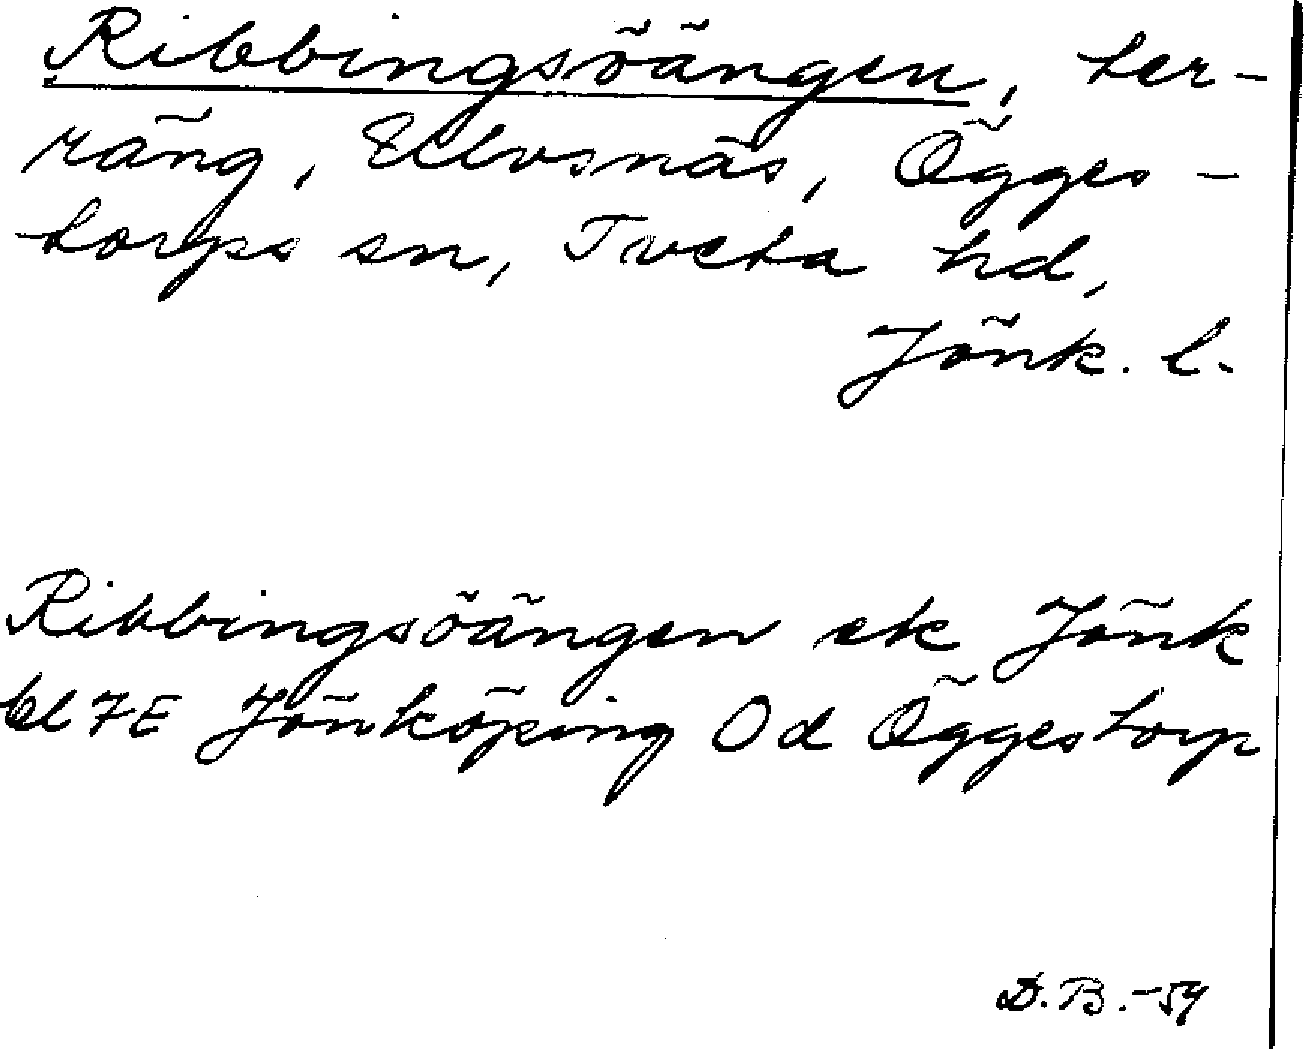 Ribbingsöängen, ter-
räng, Ulvsnäs, Ögges-
torps sn, Tveta hd,
Jönk. l.
Ribbingsöängen ek Jönk
bl 7E Jönköping 0d Öggestorp
D. B. -54